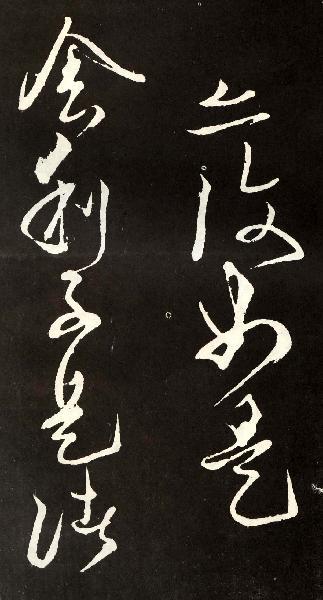 亦復如是
舍利子是諸